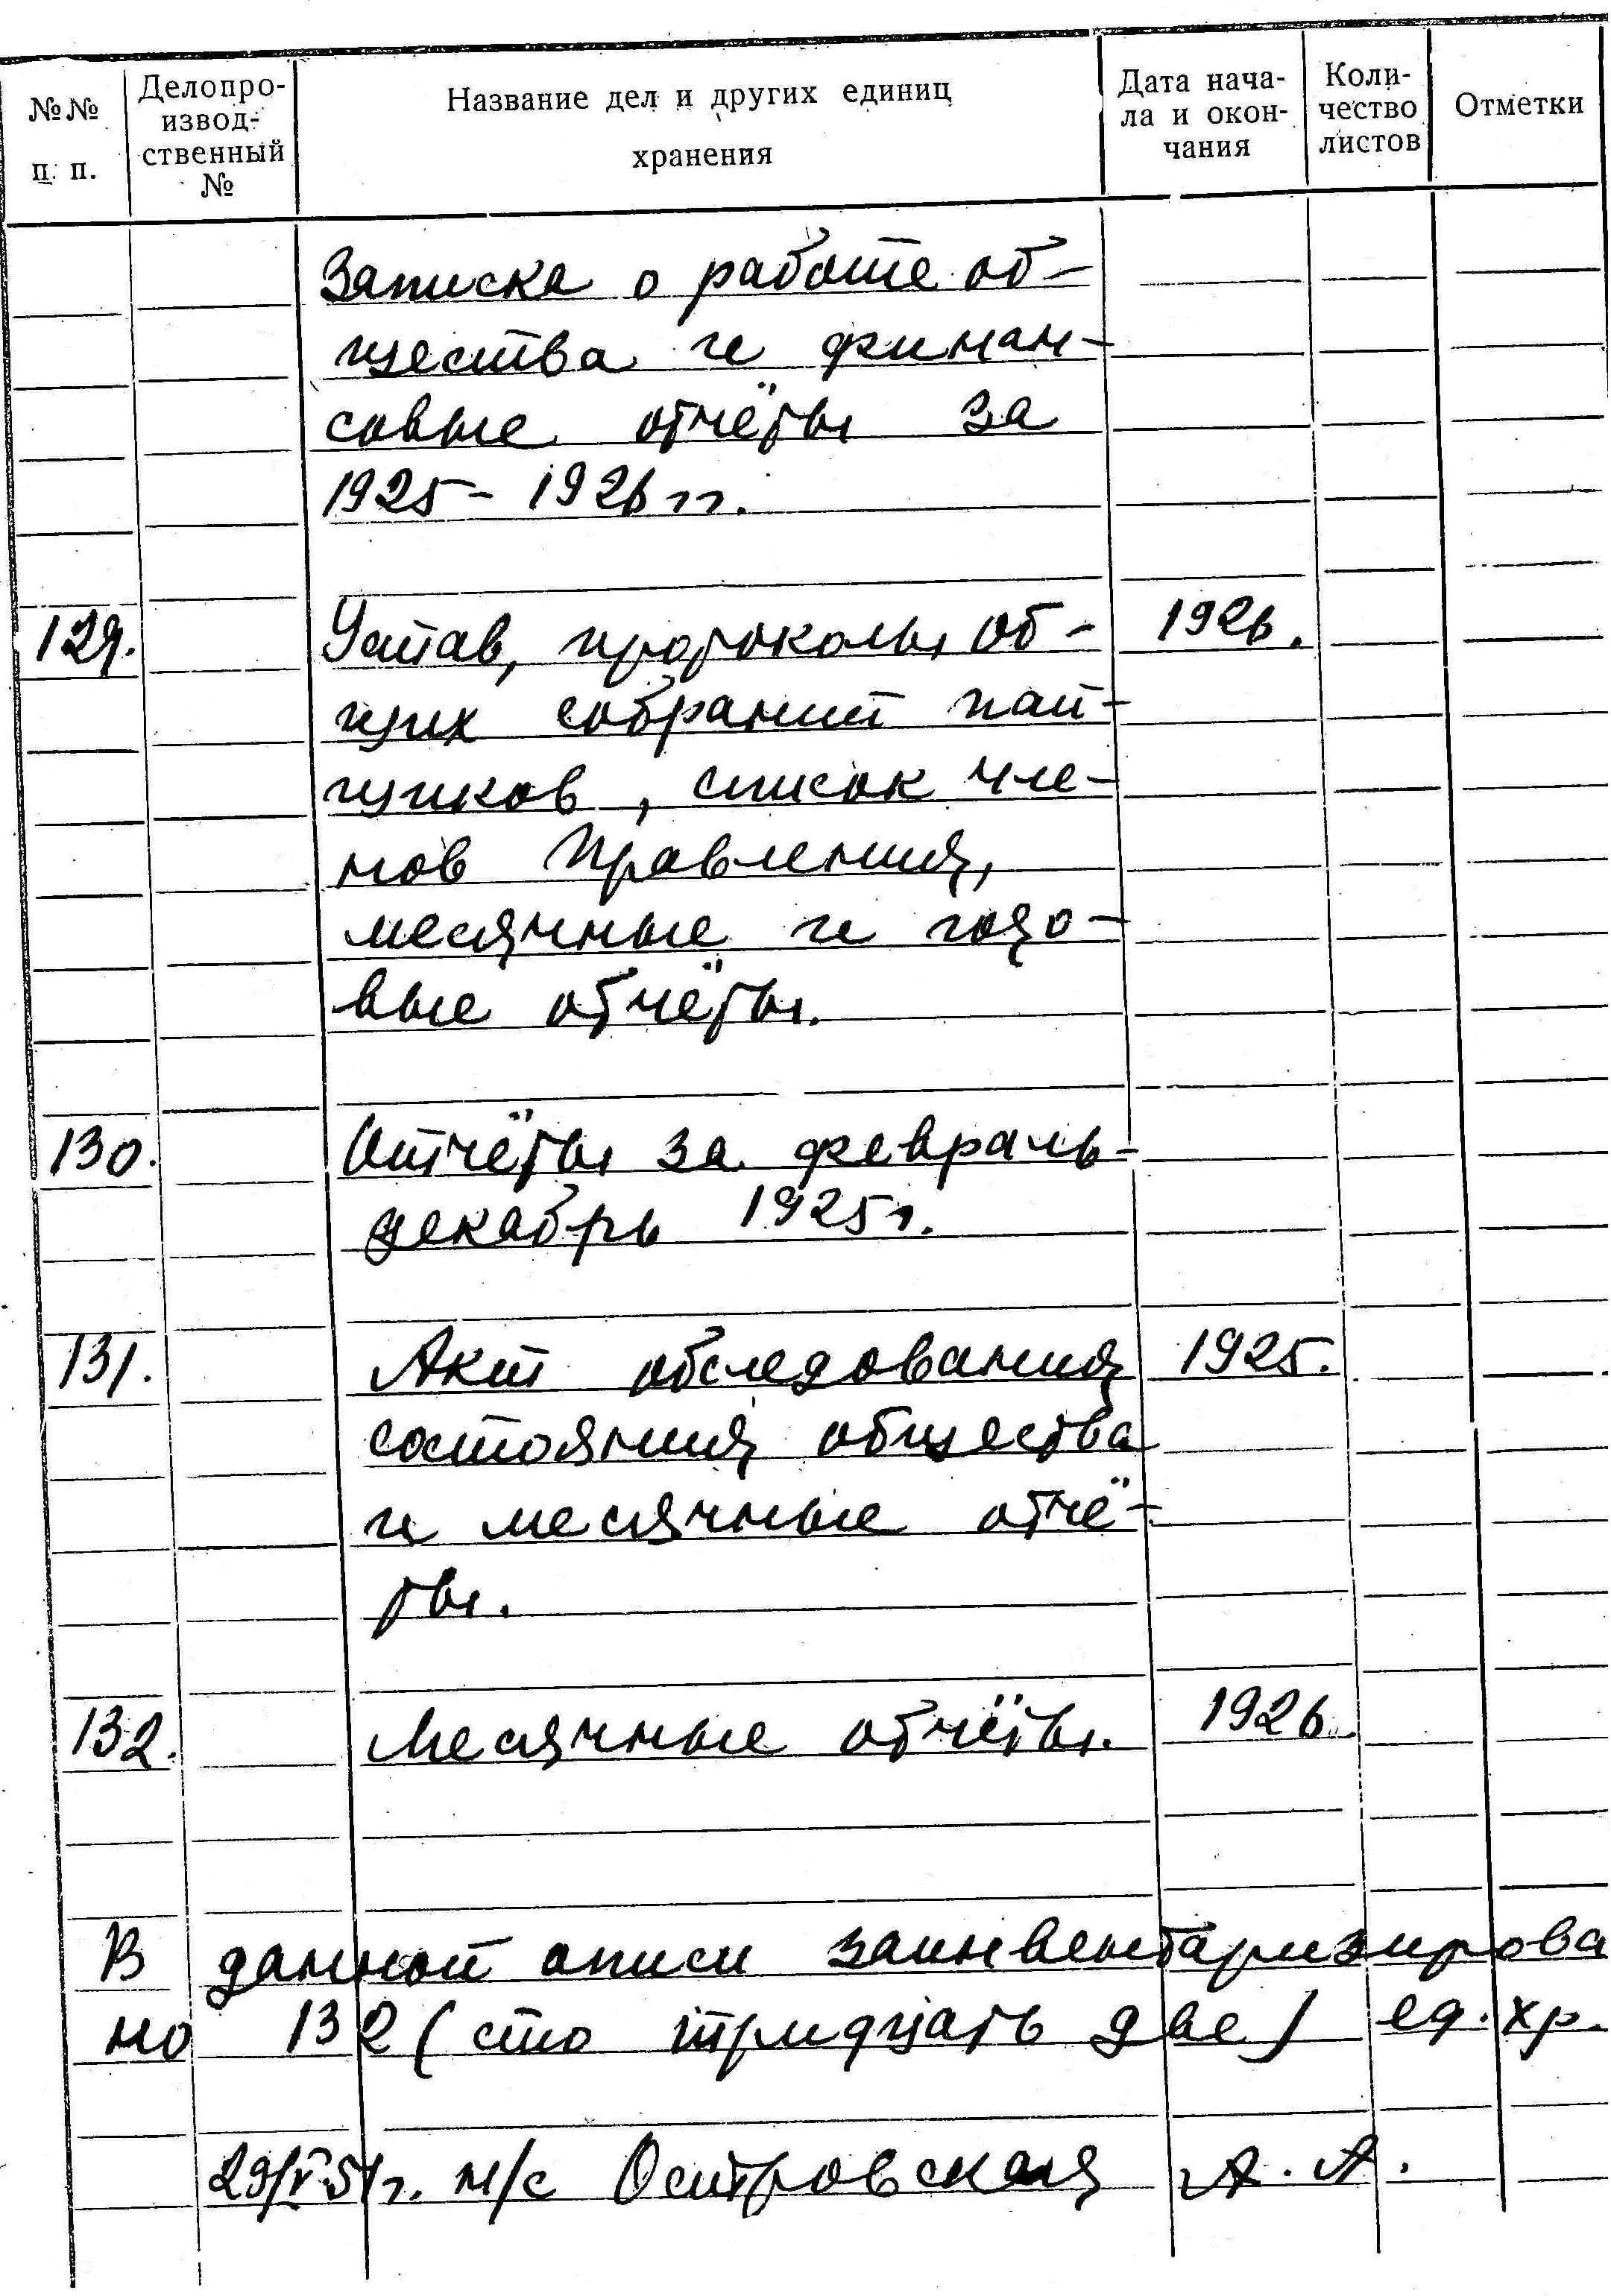 №№ п. п.
Делопро-
извод-
ственный
№
Название дел и других единиц
хранения
Дата нача-
ла и окон-
чания
Коли-
чество
листов
Отметки
Записка о работе об-
щества и финан-
совые отчёты за
1925 - 1926 гг.
129. Устав, протоколы об- 1926.
щих собраний пай-
щиков, список чле-
нов Правления,
месячные и годо-
вые отчёты.
130. Отчёты за февраль-
декабрь 1925 г.
131. Акт обследования 1925.
состояния общества
и месячные отчё-
ты.
132. Месячные отчёты. 1926.
В данной описи заинвентаризирова
но 132 (сто тридцать две) ед. хр.
29/V-51 г. м/с Островская А. А.